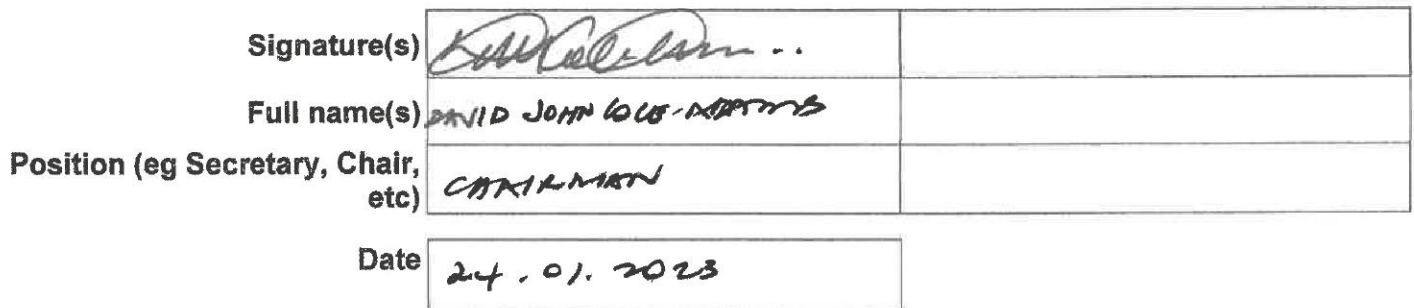 Signature(s)
Full name(s) DAVID JOHN COLE-ADAMS
Position (eg Secretary, Chair,
etc) CHAIRMAN
Date 24.01.2023